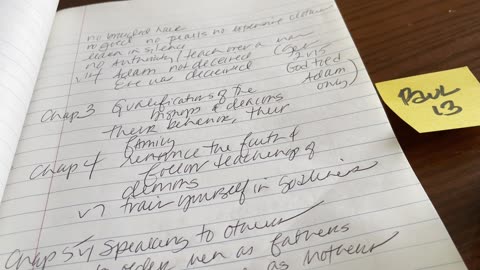 no braided hair
no gold no pearls no expensive clothes
learn in silence
no Authority / teach over a man
v 14 Adam not deceived (Gen
Eve was deceived 2:15
God tied
Adam
only)
Chap 3 Qualifications of the
bishops & deacons
their behavior, their
family
Chap 4 renounce the faith &
follow teachings of
demons
v 7 train yourself in Godliness
Chap 5 v 1 Speaking to others
older men as fathers
as mothers
Paul
13